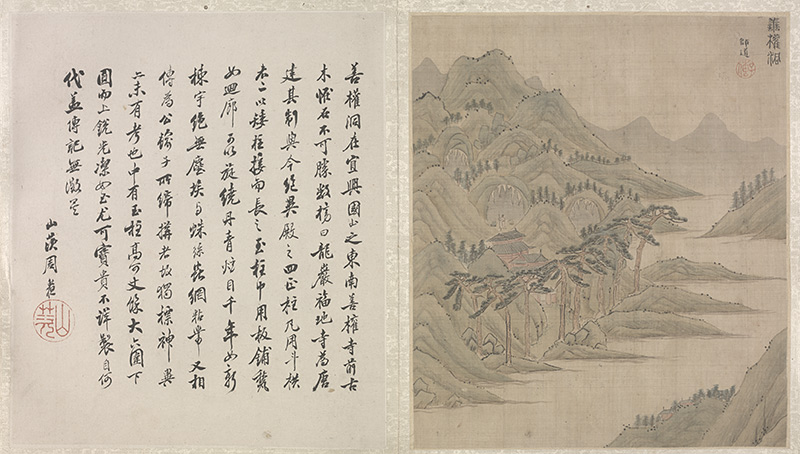 善權洞
善權洞在宜興國山之東南善權寺前古
木恠石不可勝數榜曰龍巖福地寺爲唐
建其制與今絕異殿之四正柱凡用斗栱
二以矮柱接而長之至柱中用板鋪
如迴廊可以旋繞丹青炫目千年如新
棟宇絕無塵埃与蛛絲蟲網粘帶又相
傳爲公輸子所締搆者故獨標神異
亦未有考也中有玉柱高可丈餘大六圍下
圓而上銳光潔如玉尤可寶貴不詳製自何
代並傳記無徵云
山茨周
山茨